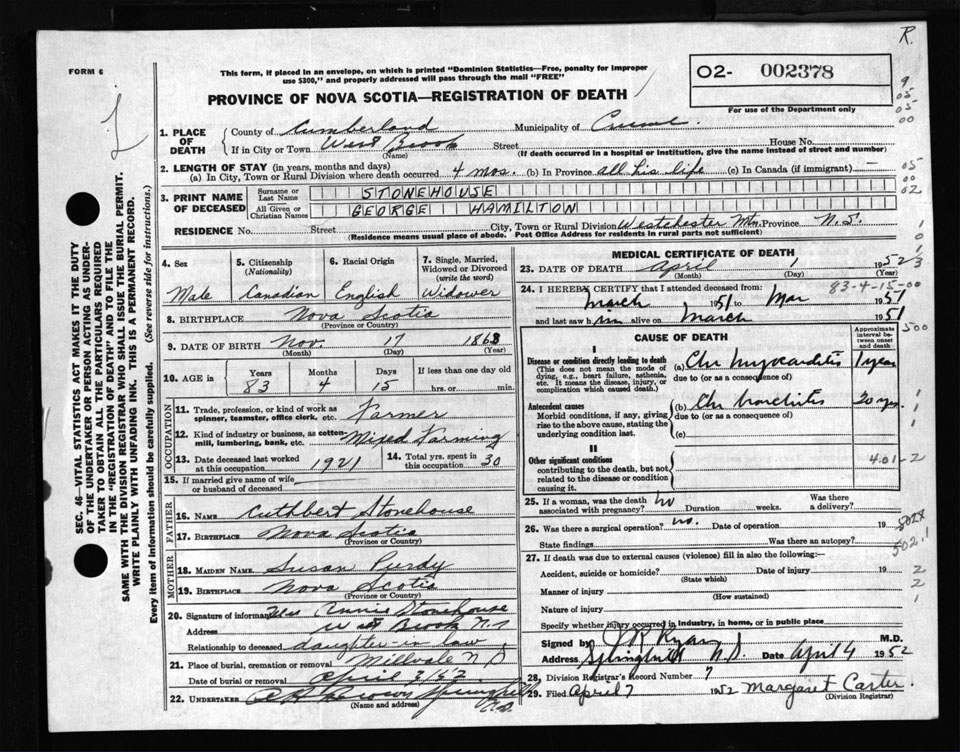 R.
FORM 6
This form, if placed in an envelope, on which is printed "Dominion Statistics—Free, penalty for improper
use $300," and properly addressed will pass through the mail "FREE"
02- 002378
PROVINCE OF NOVA SCOTIA—REGISTRATION OF DEATH
For use of the Department only
1. PLACE OF DEATH
County of Cumberland Municipality of
If in City or Town West Brook Street House No.
(Name) (If death occurred in a hospital or institution, give the name instead of street and number)
2. LENGTH OF STAY (in years, months and days)
(a) In City, Town or Rural Division where death occurred 4 mos. (b) In Province all his life (c) In Canada (if immigrant) —
3. PRINT NAME OF DECEASED
Surname or Last Name STONEHOUSE
All Given or Christian Names GEORGE HAMILTON
RESIDENCE No. Street City, Town or Rural Division Westchester Mtn. Province N.S.
(Residence means usual place of abode. Post Office Address for residents in rural parts not sufficient)
4. Sex
Male
5. Citizenship (Nationality)
Canadian
6. Racial Origin
English
7. Single, Married, Widowed or Divorced (write the word)
Widower
8. BIRTHPLACE Nova Scotia
(Province or Country)
9. DATE OF BIRTH Nov. 17 1868
(Month) (Day) (Year)
10. AGE in Years Months Days If less than one day old
83 4 15 hrs. or min.
OCCUPATION
11. Trade, profession, or kind of work as spinner, teamster, office clerk, etc. Farmer
12. Kind of industry or business, as cotton-mill, lumbering, bank, etc. Mixed Farming
13. Date deceased last worked at this occupation 1921
14. Total yrs. spent in this occupation 30
15. If married give name of wife or husband of deceased
FATHER
16. NAME Cuthbert Stonehouse
17. BIRTHPLACE Nova Scotia
(Province or Country)
MOTHER
18. MAIDEN NAME Susan Purdy
19. BIRTHPLACE Nova Scotia
(Province or Country)
20. Signature of informant Mrs Annie Stonehouse
Address West Brook N.S
Relationship to deceased daughter-in law
21. Place of burial, cremation or removal Millvale N S
Date of burial or removal April 3/52
22. UNDERTAKER Brown Springhill N.S.
(Name and address)
MEDICAL CERTIFICATE OF DEATH
23. DATE OF DEATH April 1 1952
(Month) (Day) (Year)
24. I HEREBY CERTIFY that I attended deceased from: 83-4-15-00
March 1951 to Mar 1951
and last saw him alive on March 1951
CAUSE OF DEATH
Approximate interval between onset and death
I
Disease or condition directly leading to death
(This does not mean the mode of dying, e.g., heart failure, asthenia, etc. It means the disease, injury, or complication which caused death.)
(a) Chr myocarditis 1 year
due to (or as a consequence of)
Antecedent causes
Morbid conditions, if any, giving rise to the above cause, stating the underlying condition last.
(b) Chr bronchitis 20 yrs
due to (or as a consequence of)
(c)
II
Other significant conditions
contributing to the death, but not related to the disease or condition causing it.
401-2
25. If a woman, was the death associated with pregnancy? no Duration weeks. Was there a delivery?
26. Was there a surgical operation? no. Date of operation 19
State findings Was there an autopsy?
27. If death was due to external causes (violence) fill in also the following:—
Accident, suicide or homicide? Date of injury 19
(State which)
Manner of injury
(How sustained)
Nature of injury
Specify whether injury occurred in industry, in home, or in public place
Signed by J R Ryan M.D.
Address Springhill N.S. Date April 4 1952
28. Division Registrar's Record Number 7
29. Filed April 7 1952 Margaret Carter.
(Division Registrar)
SEC. 46—VITAL STATISTICS ACT MAKES IT THE DUTY
OF THE UNDERTAKER OR PERSON ACTING AS UNDER-
TAKER TO OBTAIN ALL THE PARTICULARS REQUIRED
IN THE "REGISTRATION OF DEATH" AND TO FILE THE
SAME WITH THE DIVISION REGISTRAR WHO SHALL ISSUE THE BURIAL PERMIT.
WRITE PLAINLY WITH UNFADING INK. THIS IS A PERMANENT RECORD.
Every item of information should be carefully supplied. (See reverse side for instructions.)